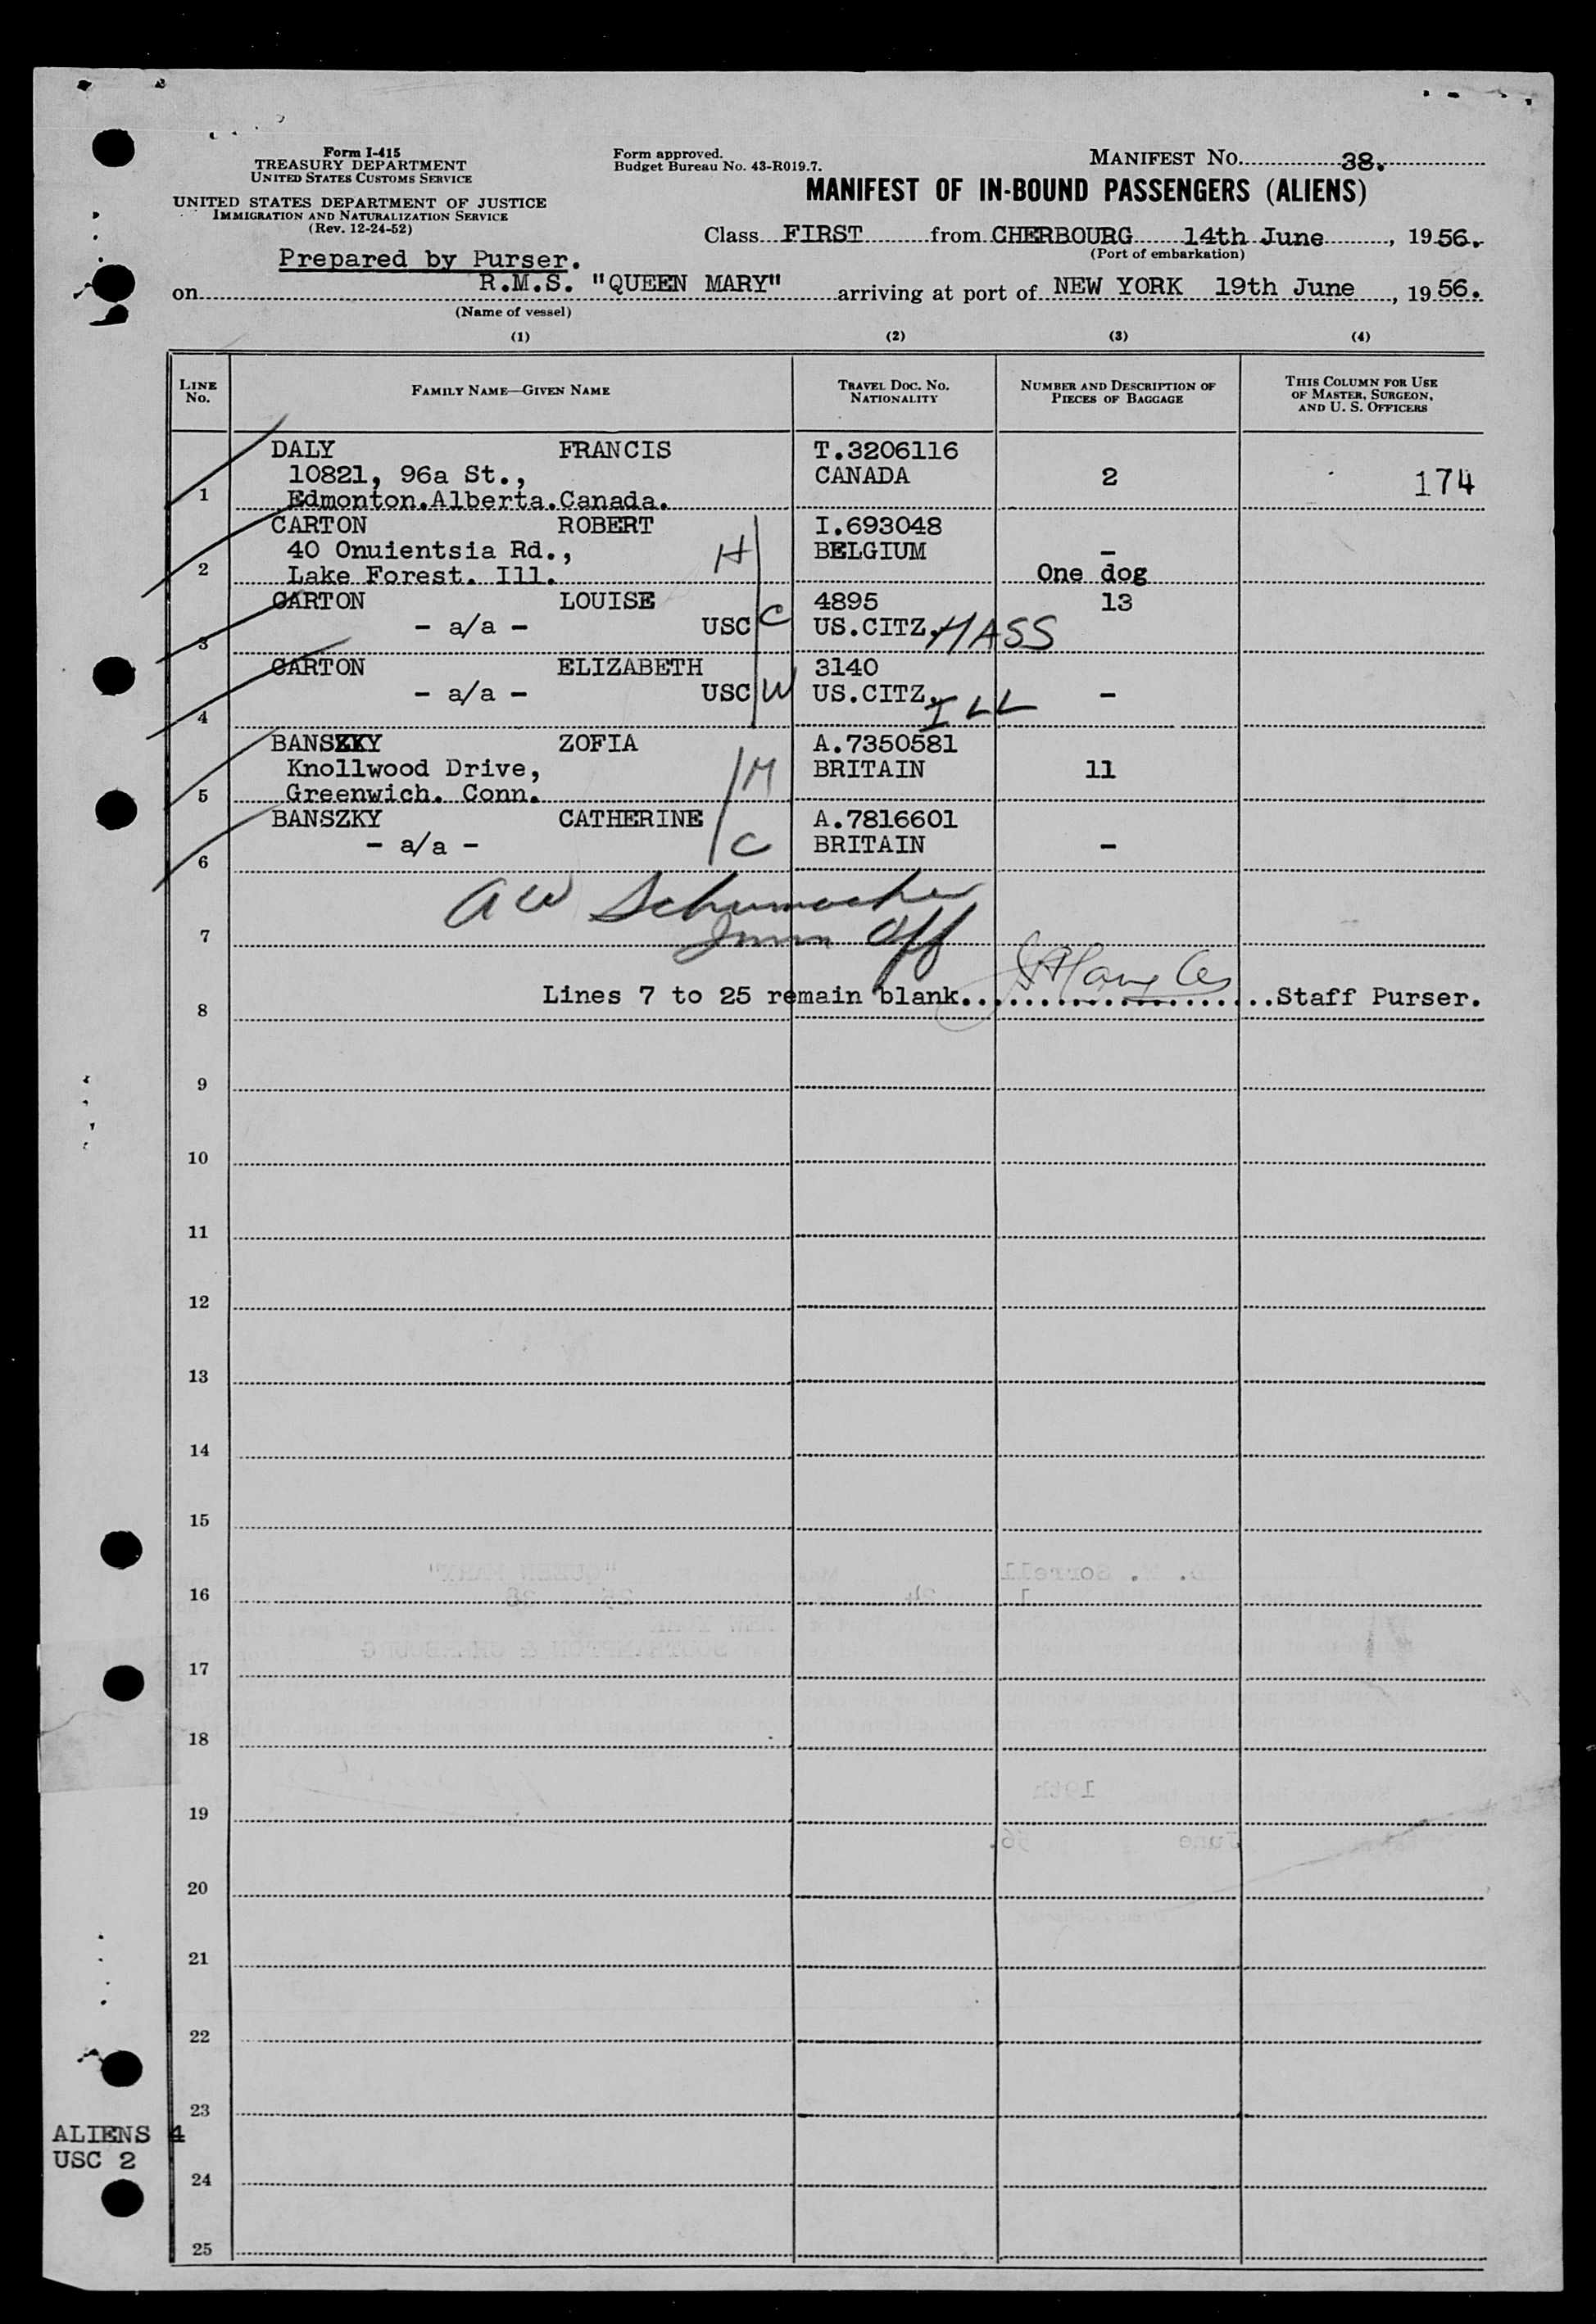 Form I-415
TREASURY DEPARTMENT
UNITED STATES CUSTOMS SERVICE
UNITED STATES DEPARTMENT OF JUSTICE
IMMIGRATION AND NATURALIZATION SERVICE
(Rev. 12-24-52)
Form approved.
Budget Bureau No. 43-R019.7.
MANIFEST NO. 38.
MANIFEST OF IN-BOUND PASSENGERS (ALIENS)
Class FIRST from CHERBOURG 14th June, 1956.
(Port of embarkation)
Prepared by Purser.
on R.M.S. "QUEEN MARY" arriving at port of NEW YORK 19th June, 1956.
(Name of vessel)
(1) (2) (3) (4)
LINE NO.
FAMILY NAME—GIVEN NAME
TRAVEL DOC. NO. NATIONALITY
NUMBER AND DESCRIPTION OF PIECES OF BAGGAGE
THIS COLUMN FOR USE OF MASTER, SURGEON, AND U. S. OFFICERS
DALY FRANCIS T.3206116
10821, 96a St., CANADA 2 174
1 Edmonton.Alberta.Canada.
CARTON ROBERT I.693048
40 Onuientsia Rd., H BELGIUM –
2 Lake Forest. Ill. One dog
CARTON LOUISE 4895 13
3 – a/a – USC C US.CITZ. MASS
CARTON ELIZABETH 3140
– a/a – USC W US.CITZ. ILL –
4
BANSZKY ZOFIA A.7350581
Knollwood Drive, M BRITAIN 11
5 Greenwich. Conn.
BANSZKY CATHERINE A.7816601
– a/a – C BRITAIN –
6
A W Schumacher
7 Imm Off
Lines 7 to 25 remain blank. Staff Purser.
8
9
10
11
12
13
14
15
16
17
18
19
20
21
22
23
ALIENS 4
USC 2
24
25